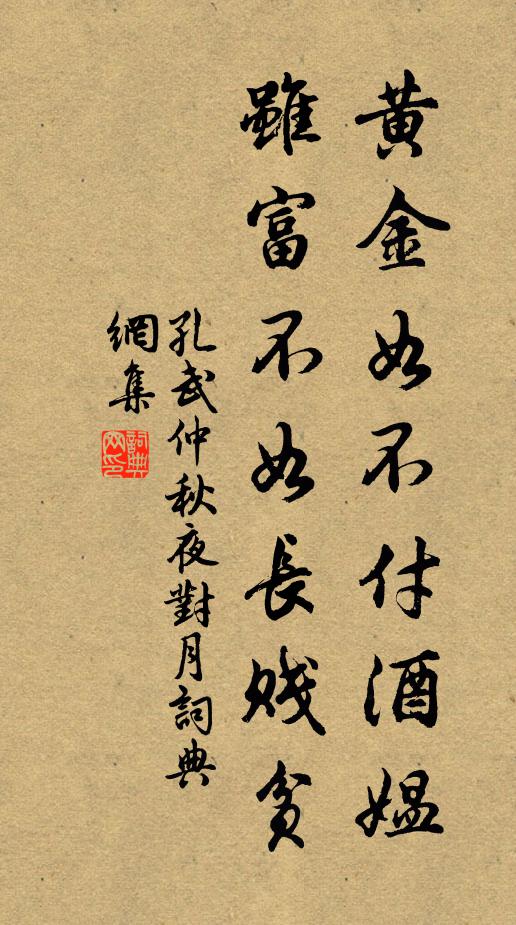 黃金如不付酒媼
雖富不如長賤貧
孔武仲秋夜對月詞典
網集
詞典
网印